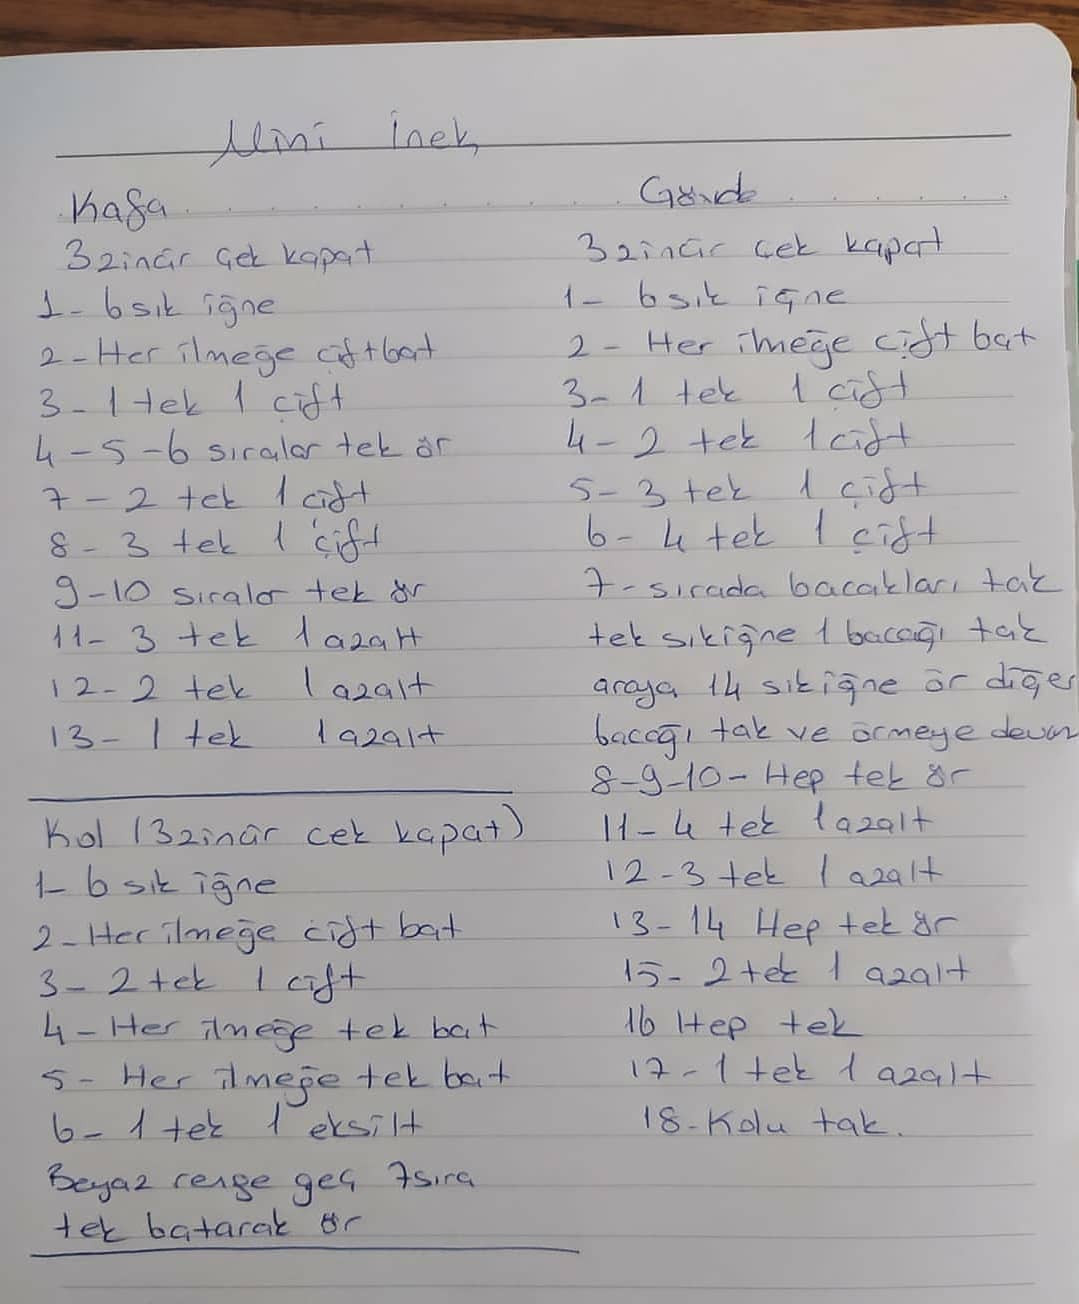 Mini İnek
Kafa
3 zincir çek kapat
1- 6 sık iğne
2- Her ilmeğe çift bat
3- 1 tek 1 çift
4-5-6 sıralar tek ör
7- 2 tek 1 çift
8- 3 tek 1 çift
9-10 sıralar tek ör
11- 3 tek 1 azalt
12- 2 tek 1 azalt
13- 1 tek 1 azalt
Kol (3 zincir çek kapat)
1- 6 sık iğne
2- Her ilmeğe çift bat
3- 2 tek 1 çift
4- Her ilmeğe tek bat
5- Her ilmeğe tek bat
6- 1 tek 1 eksilt
Beyaz renge geç 7 sıra
tek batarak ör
Gövde
3 zincir çek kapat
1- 6 sık iğne
2- Her ilmeğe çift bat
3- 1 tek 1 çift
4- 2 tek 1 çift
5- 3 tek 1 çift
6- 4 tek 1 çift
7- sırada bacakları tak
tek sık iğne 1 bacağı tak
araya 14 sık iğne ör diğer
bacağı tak ve örmeye devam
8-9-10- Hep tek ör
11- 4 tek 1 azalt
12- 3 tek 1 azalt
13-14 Hep tek ör
15- 2 tek 1 azalt
16 Hep tek
17- 1 tek 1 azalt
18- Kolu tak.